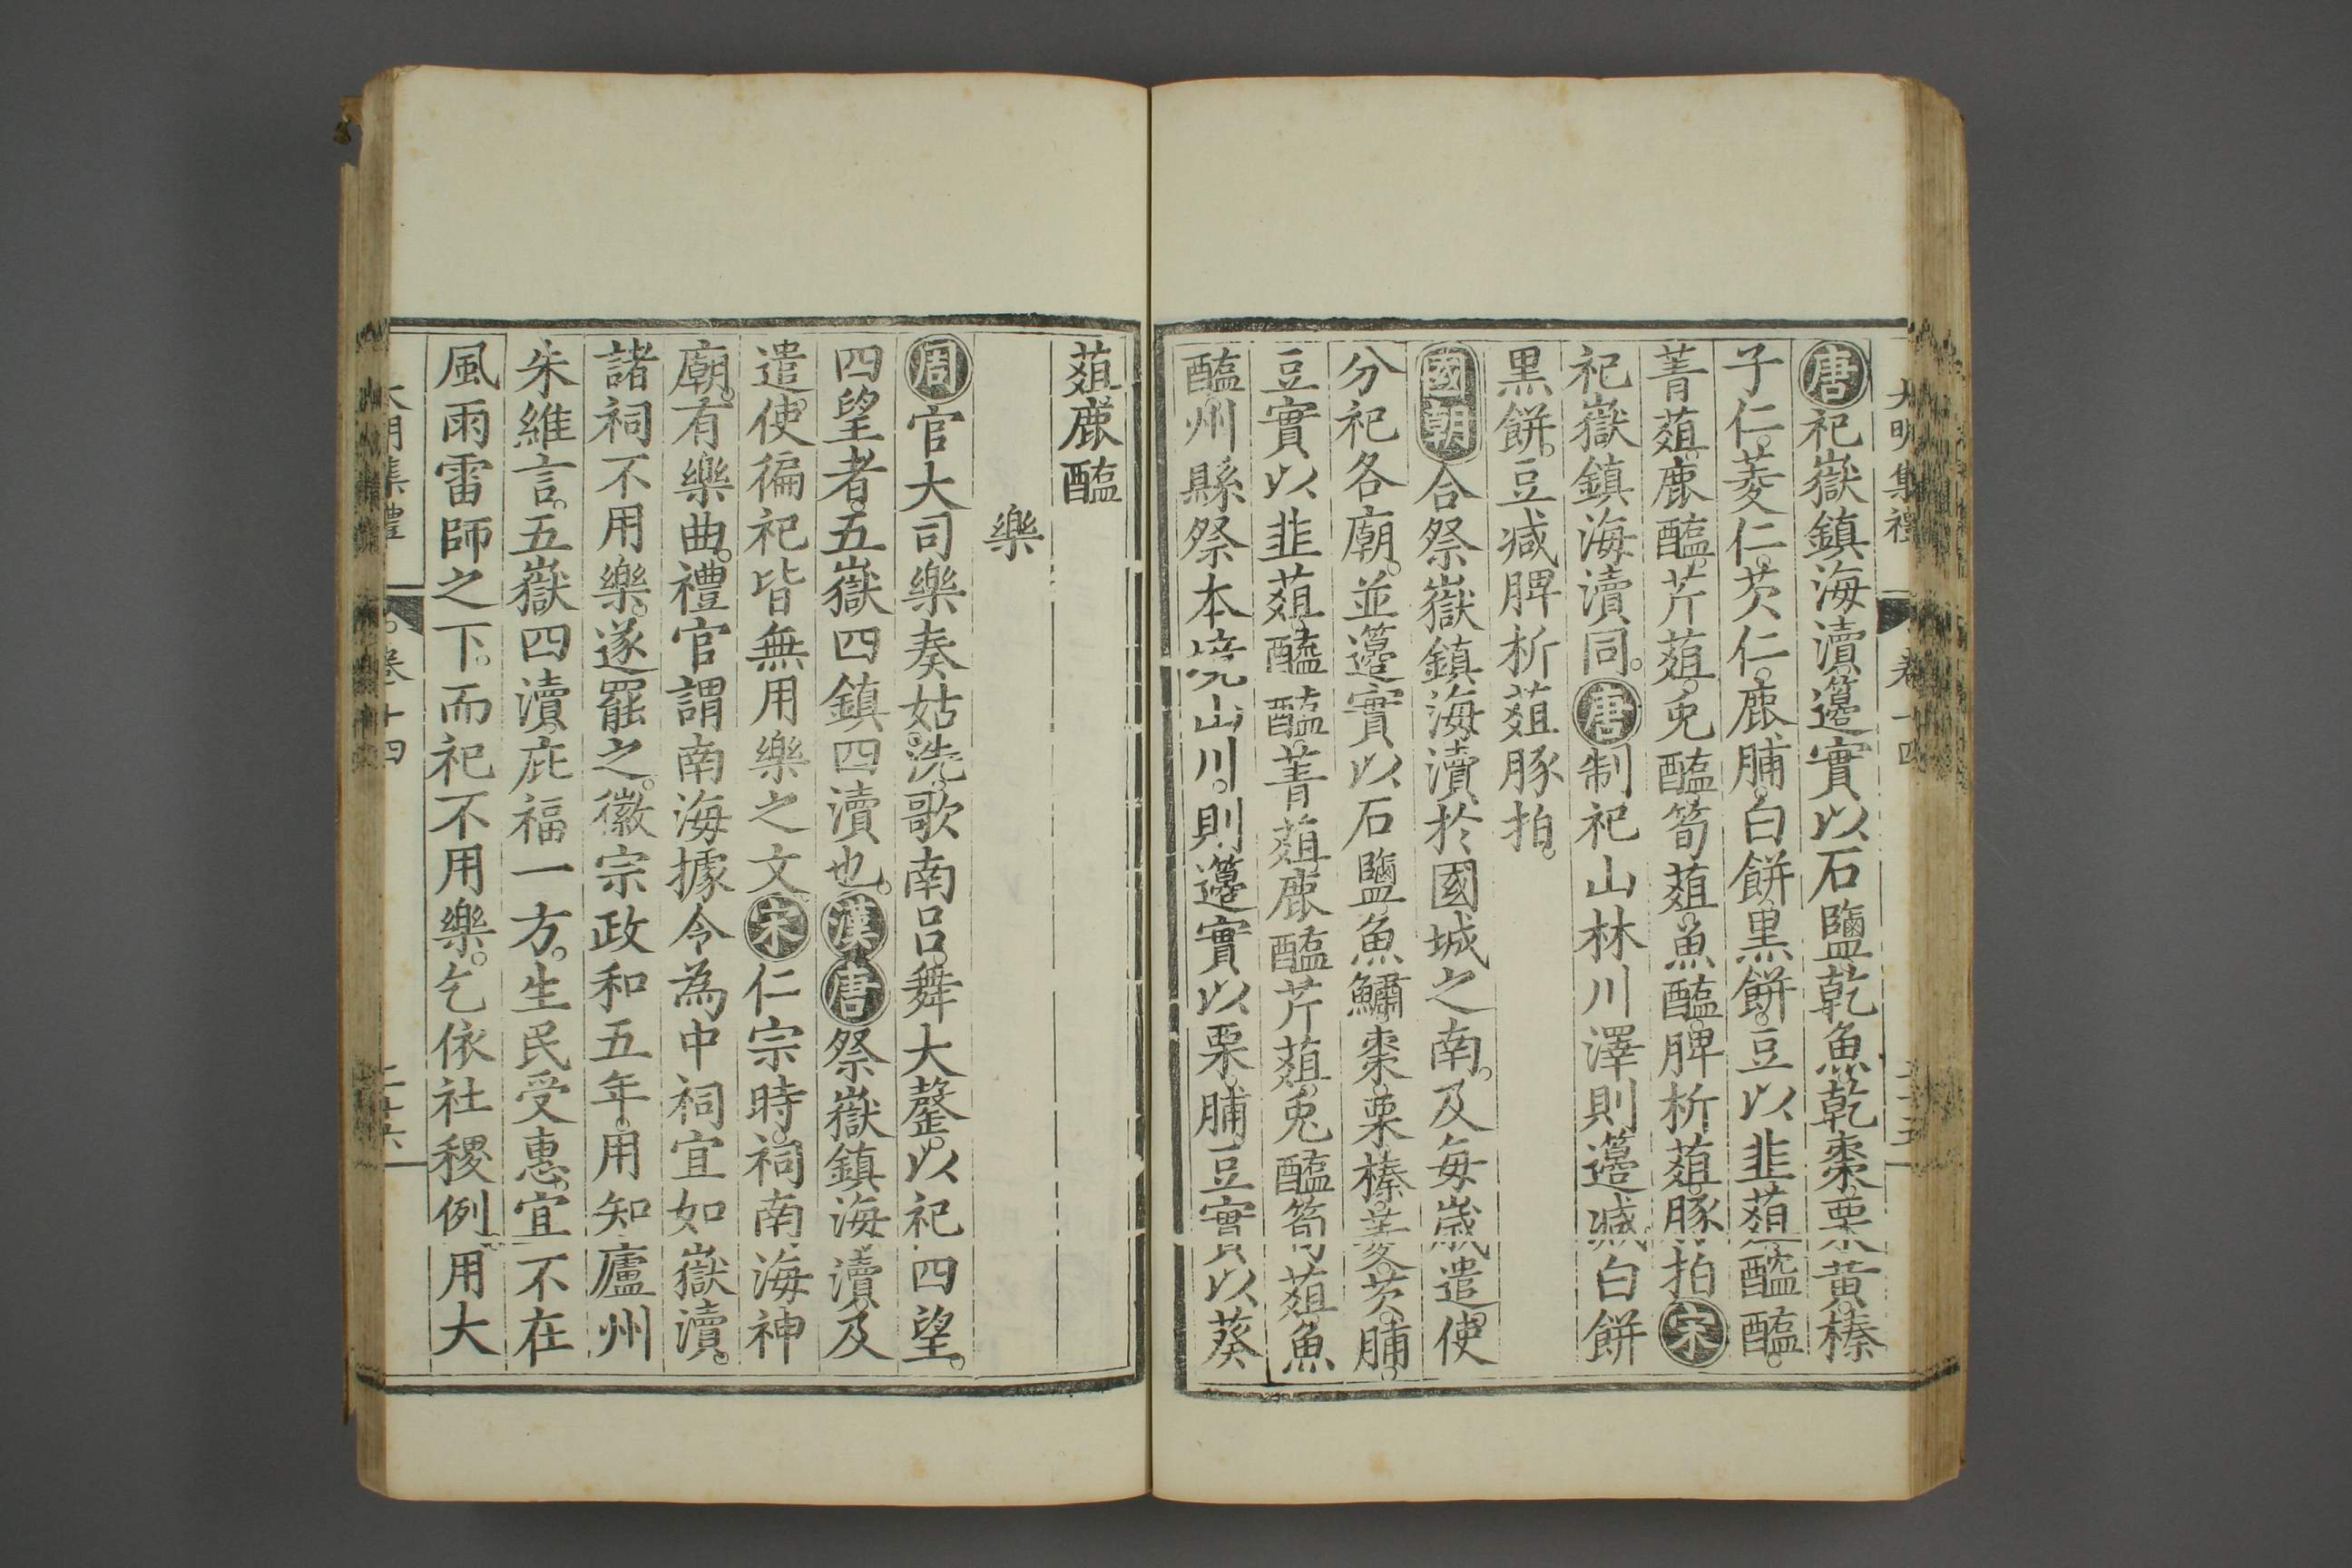 大明集禮
卷十四
唐祀嶽鎮海瀆。籩實以石鹽。乾魚。乾棗。栗黃。榛
子仁。菱仁。芡仁。鹿脯。白餅。黒餅。豆以韭葅。醓醢。
菁葅。鹿醢。芹葅。兎醢。筍葅。魚醢。脾析葅。豚拍。宋
祀嶽鎮海瀆同。唐制祀山林川澤則籩减白餅
黒餅。豆减脾析葅豚拍。
國朝合祭嶽鎮海瀆於國城之南。及每歲遣使
分祀各廟。並籩實以石鹽。魚鱐。棗。栗。榛。菱。芡。脯。
豆實以韭葅。醓醢。菁葅。鹿醢。芹葅。兎醢。筍葅。魚
醢。州縣祭本境山川。則籩實以栗。脯。豆實以葵
葅。鹿醢
樂
周官大司樂奏姑洗。歌南呂。舞大㲈。以祀四望。
四望者。五嶽四鎮四瀆也。漢唐祭嶽鎮海瀆。及
遣使徧祀皆無用樂之文。宋仁宗時。祠南海神
廟。有樂曲。禮官謂南海據令為中祠宜如嶽瀆。
諸祠不用樂。遂罷之。徽宗政和五年。用知廬州
朱維言。五嶽四瀆。庇福一方。生民受惠。宜不在
風雨雷師之下。而祀不用樂。乞依社稷例。用大
大明集禮
卷十四